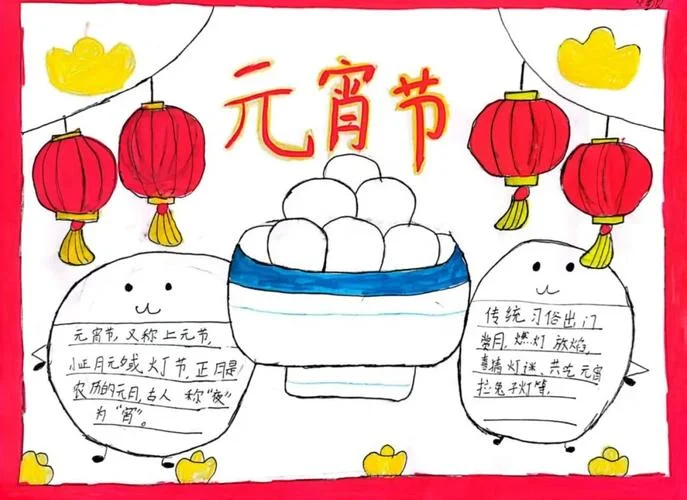 元宵节
元宵节，又称上元节，
小正月元夕或灯节，正月是
农历的元月，古人称"夜"
为"宵"。
传统习俗出门
赏月，燃灯放焰，
喜猜灯谜、共吃元宵
拉兔子灯等，